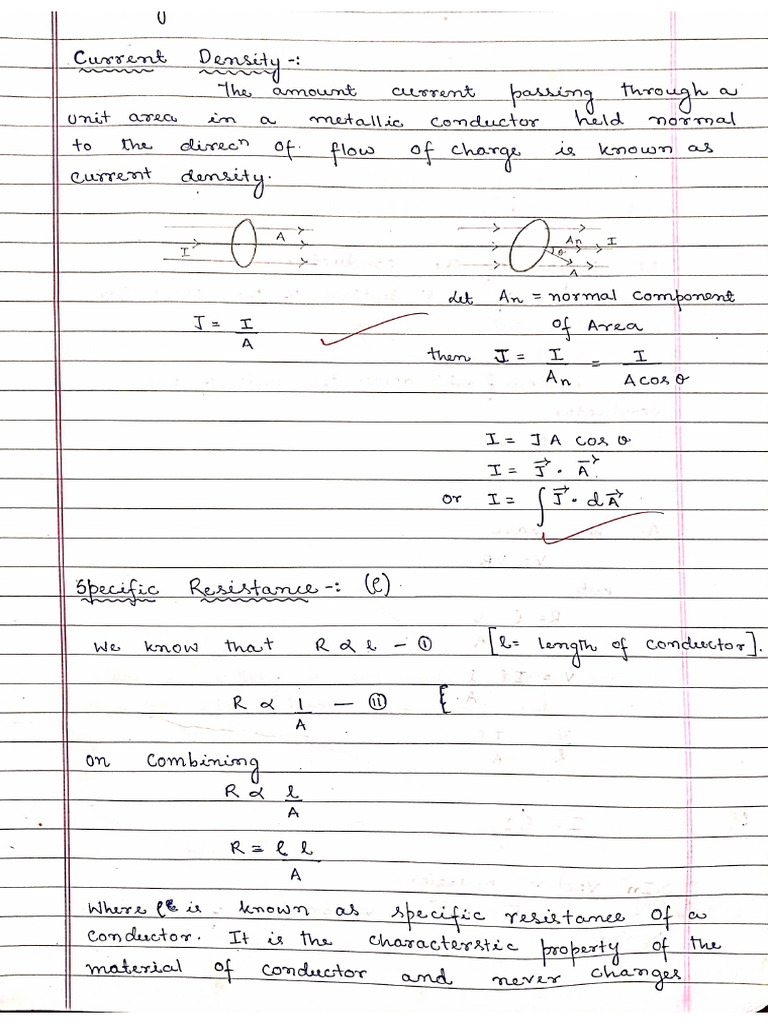 Current Density-:
The amount current passing through a
unit area in a metallic conductor held normal
to the direcⁿ of flow of charge is known as
current density.
I A
An I
θ
A
Let An = normal component
of Area
J = I/A
then J = I/An = I/A cos θ
I = J A cos θ
I = J⃗ · A⃗
or I = ∫ J⃗ · dA⃗
Specific Resistance-: (ρ)
We know that R ∝ l - ① [l = length of conductor].
R ∝ 1/A - ⑪ [
on combining
R ∝ l/A
R = ρ l/A
Where ρ is known as specific resistance of a
conductor. It is the characterstic property of the
material of conductor and never changes